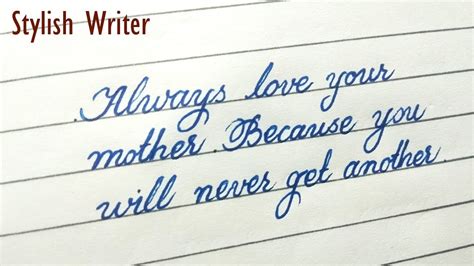 Stylish Writer
Always love your
mother. Because you
will never get another.